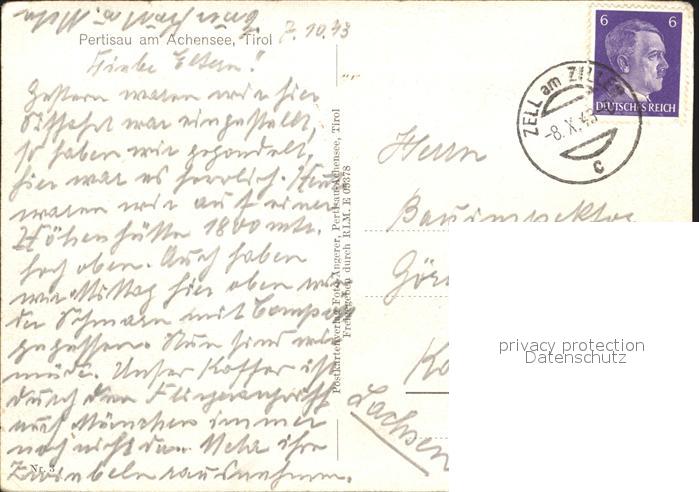 Pertisau am Achensee, Tirol
7.10.43
Liebe Eltern!
Gestern waren wir hier
war eingestellt,
so haben wir gegondelt,
hier war es herrlich.
waren wir auf einer
Höhenhütte 1800 mtr.
hoch oben. Auch haben
wir Mittag hier oben
mit
gegessen. Nun sind wir
müde. Unser Koffer ist
durch den Fliegerangriff
auf München immer
noch nicht da.
Zwiebeln rausnehmen.
Nr. 3
Postkartenverlag Foto Angerer, Pertisau-Achensee, Tirol
Freigegeben durch RLM. E 09378
6 6
DEUTSCHES REICH
ZELL am ZILLER
-8.X.43
c
Herrn
Bauinspektor
Gör
Ko
Sachsen
privacy protection
Datenschutz